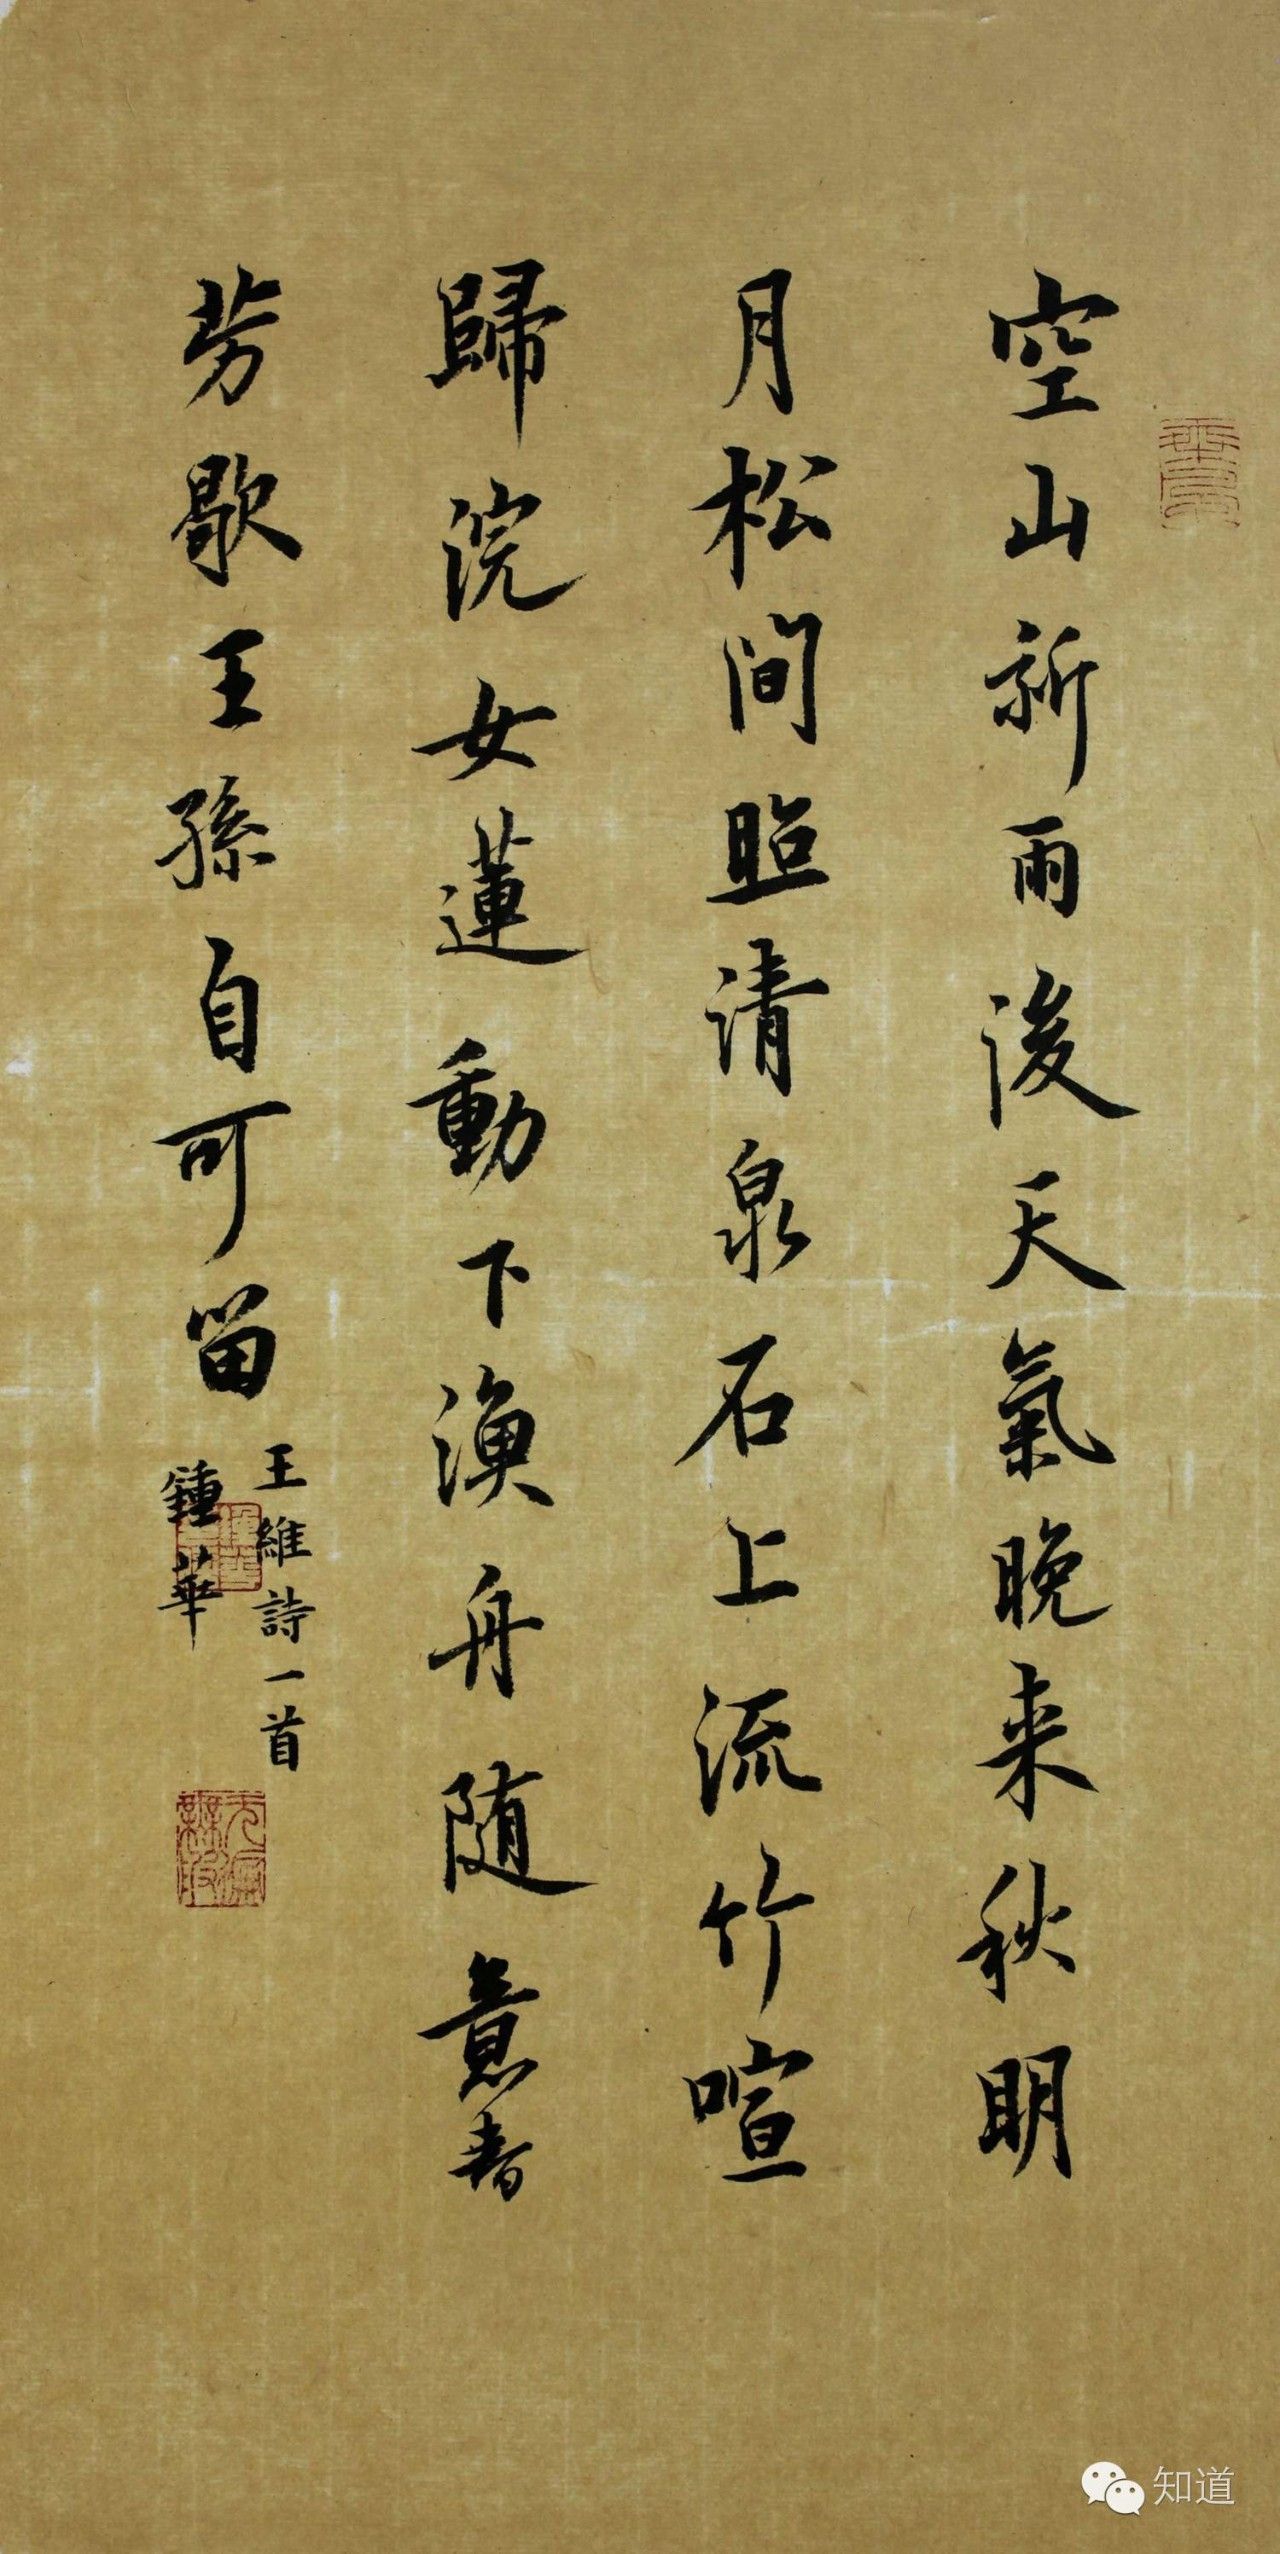 空山新雨後天氣晚来秋明
月松间照清泉石上流竹喧
歸浣女蓮動下漁舟随意春
芳歇王孫自可留
王維詩一首
鍾華
知道